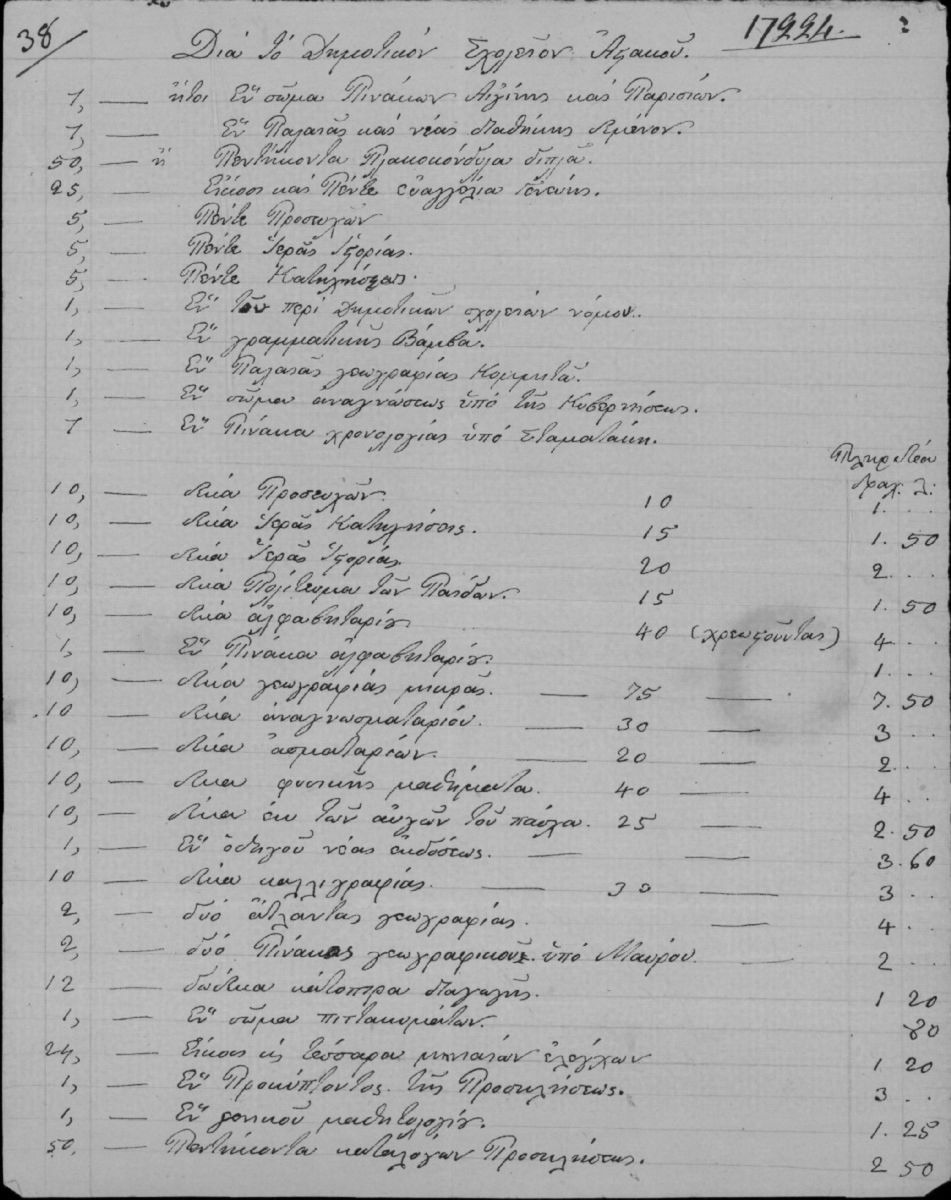 38/ 17224. 2
Διά τό Δημοτικόν Σχολεῖον Ἀστακοῦ.
1, — ἤτοι Ἕν σῶμα Πινάκων Αἰγίνης καί Παρισίων.
1, — Ἕν Παλαιᾶς καί νέας Διαθήκης
50, — ἤ Πεντήκοντα Πλακοκόνδυλα διπλᾶ.
25, — Εἴκοσι καί Πέντε εὐαγγέλια
5, — Πέντε Προσευχῶν
5, — Πέντε Ἱερᾶς Ἱστορίας.
5, — Πέντε Κατηχήσεως.
1, — Ἕν τοῦ περί Δημοτικῶν σχολείων νόμου.
1, — Ἕν γραμματικῆς Βάμβα.
1, — Ἕν Παλαιᾶς γεωγραφίας Κομμητᾶ.
1, — Ἕν σῶμα ἀναγνώσεως ὑπό τῆς Κυβερνήσεως.
1 — Ἕν Πίνακα χρονολογίας ὑπό Σταματάκη.
Πληρωτέα
Δραχ: λ:
10, — Δέκα Προσευχῶν. 10 1. . .
10, — Δέκα Ἱερᾶς Κατηχήσεις. 15 1. 50
10, — Δέκα Ἱερᾶς Ἱστορίας. 20 2. . .
10, — Δέκα Πολίτευμα τῶν Παίδων 15 1. 50
10, — Δέκα ἀλφαβητάρια 40 (χρεωστοῦντας) 4 . .
1, — Ἕν Πίνακα ἀλφαβηταρίου. 1. . .
10, — Δέκα γεωγραφίας μικρᾶς. — 75 — 7. 50
10 — Δέκα ἀναγνωσματαρίου. — 30 — 3 . .
10, — Δέκα ἀσματαρίων. — 20 — 2. . .
10, — Δέκα φυσικῆς μαθήματα. 40 — 4 . .
10, — Δέκα ἐκ τῶν αὐγῶν τοῦ πάσχα. 25 — 2. 50
1, — Ἕν ὁδηγοῦ νέας ἐκδόσεως. — — 3. 60
10 — Δέκα καλλιγραφίας. — 30 — 3 . .
2, — δυό ἄτλαντας γεωγραφίας. — 4 . .
2, — δυό Πίνακας γεωγραφικούς ὑπό Μαύρου — 2 . .
12 — δώδεκα κάτοπτρα διαγωγῆς. 1 20
1, — Ἕν σῶμα πιττακωμάτων. 80
24, — Εἴκοσι κ τέσσαρα μηνιαίων ἐλέγχων 1 20
1, — Ἕν Προκύπτοντος τῆς Προσκλήσεως. 3 . .
1, — Ἕν γενικοῦ μαθητολογίου. 1. 25
50, — Πεντήκοντα καταλόγων Προσκλήσεως. 2 50